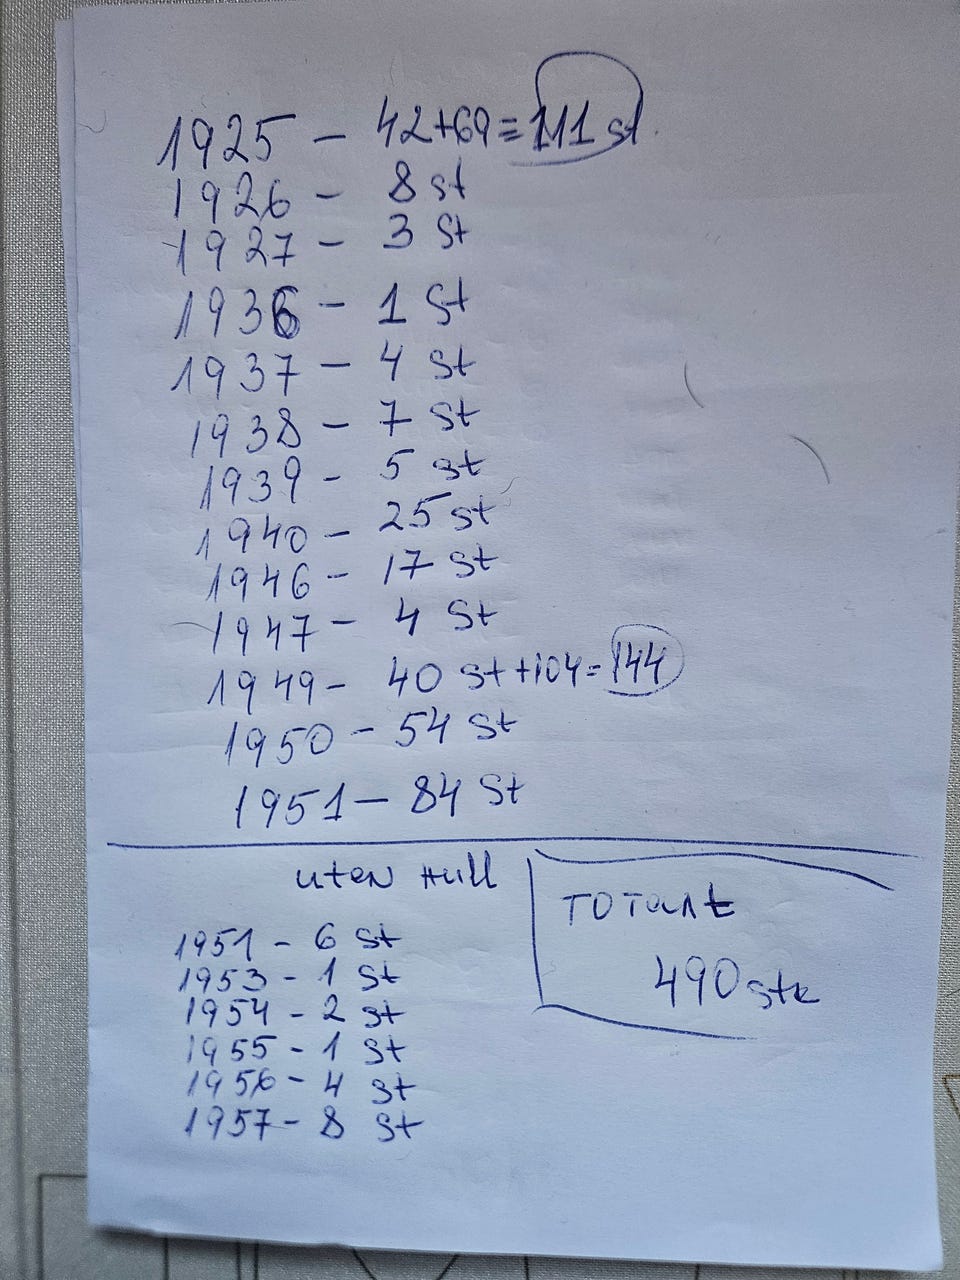 1925 - 42+69=111 st.
1926 - 8 st
1927 - 3 st
1936 - 1 st
1937 - 4 st
1938 - 7 st
1939 - 5 st
1940 - 25 st
1946 - 17 st
1947 - 4 st
1949 - 40 st+104=144
1950 - 54 st
1951 - 84 st
uten Hull
1951 - 6 st
1953 - 1 st
1954 - 2 st
1955 - 1 st
1956 - 4 st
1957 - 8 st
TOTALt
490 stk